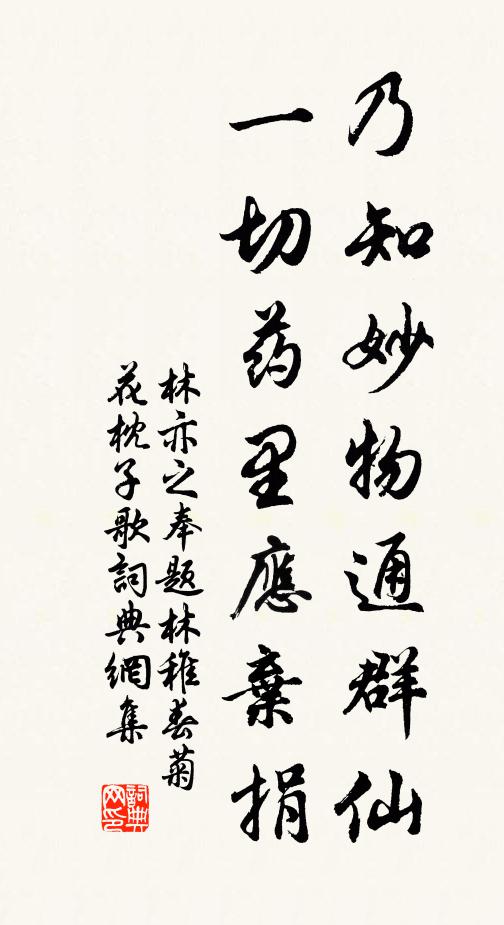 乃知妙物通群仙
一切药里應棄捐
林亦之奉題林稚春菊
花枕子歌詞典網集
詞典網印